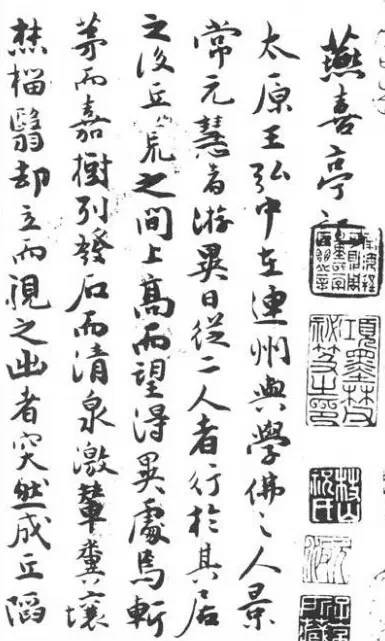 燕喜亭記
太原王弘中在連州與學佛之人景
常元慧者游異日從二人者行於其居
之後丘荒之間上高而望得異處焉斬
茅而嘉樹列發石而清泉激輦糞壤
燓椔翳却立而視之出者突然成丘陷
項墨林
祕笈之印
枝山
祝氏